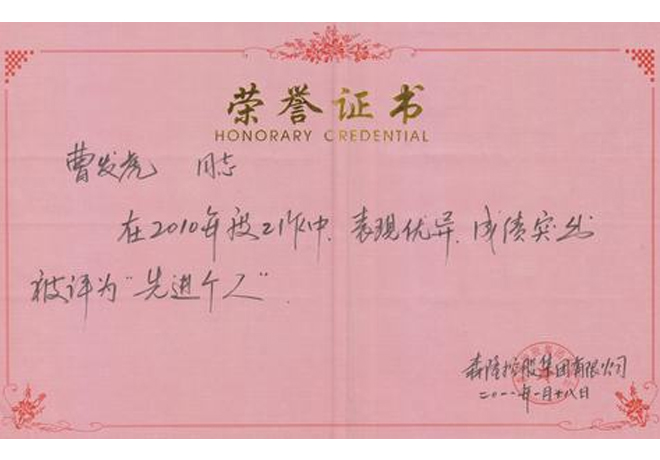 荣誉证书
HONORARY CREDENTIAL
曹发虎 同志
在2010年度工作中,表现优异,成绩突出
被评为"先进个人".
森隆控股集团有限公司
二〇一一年一月十八日